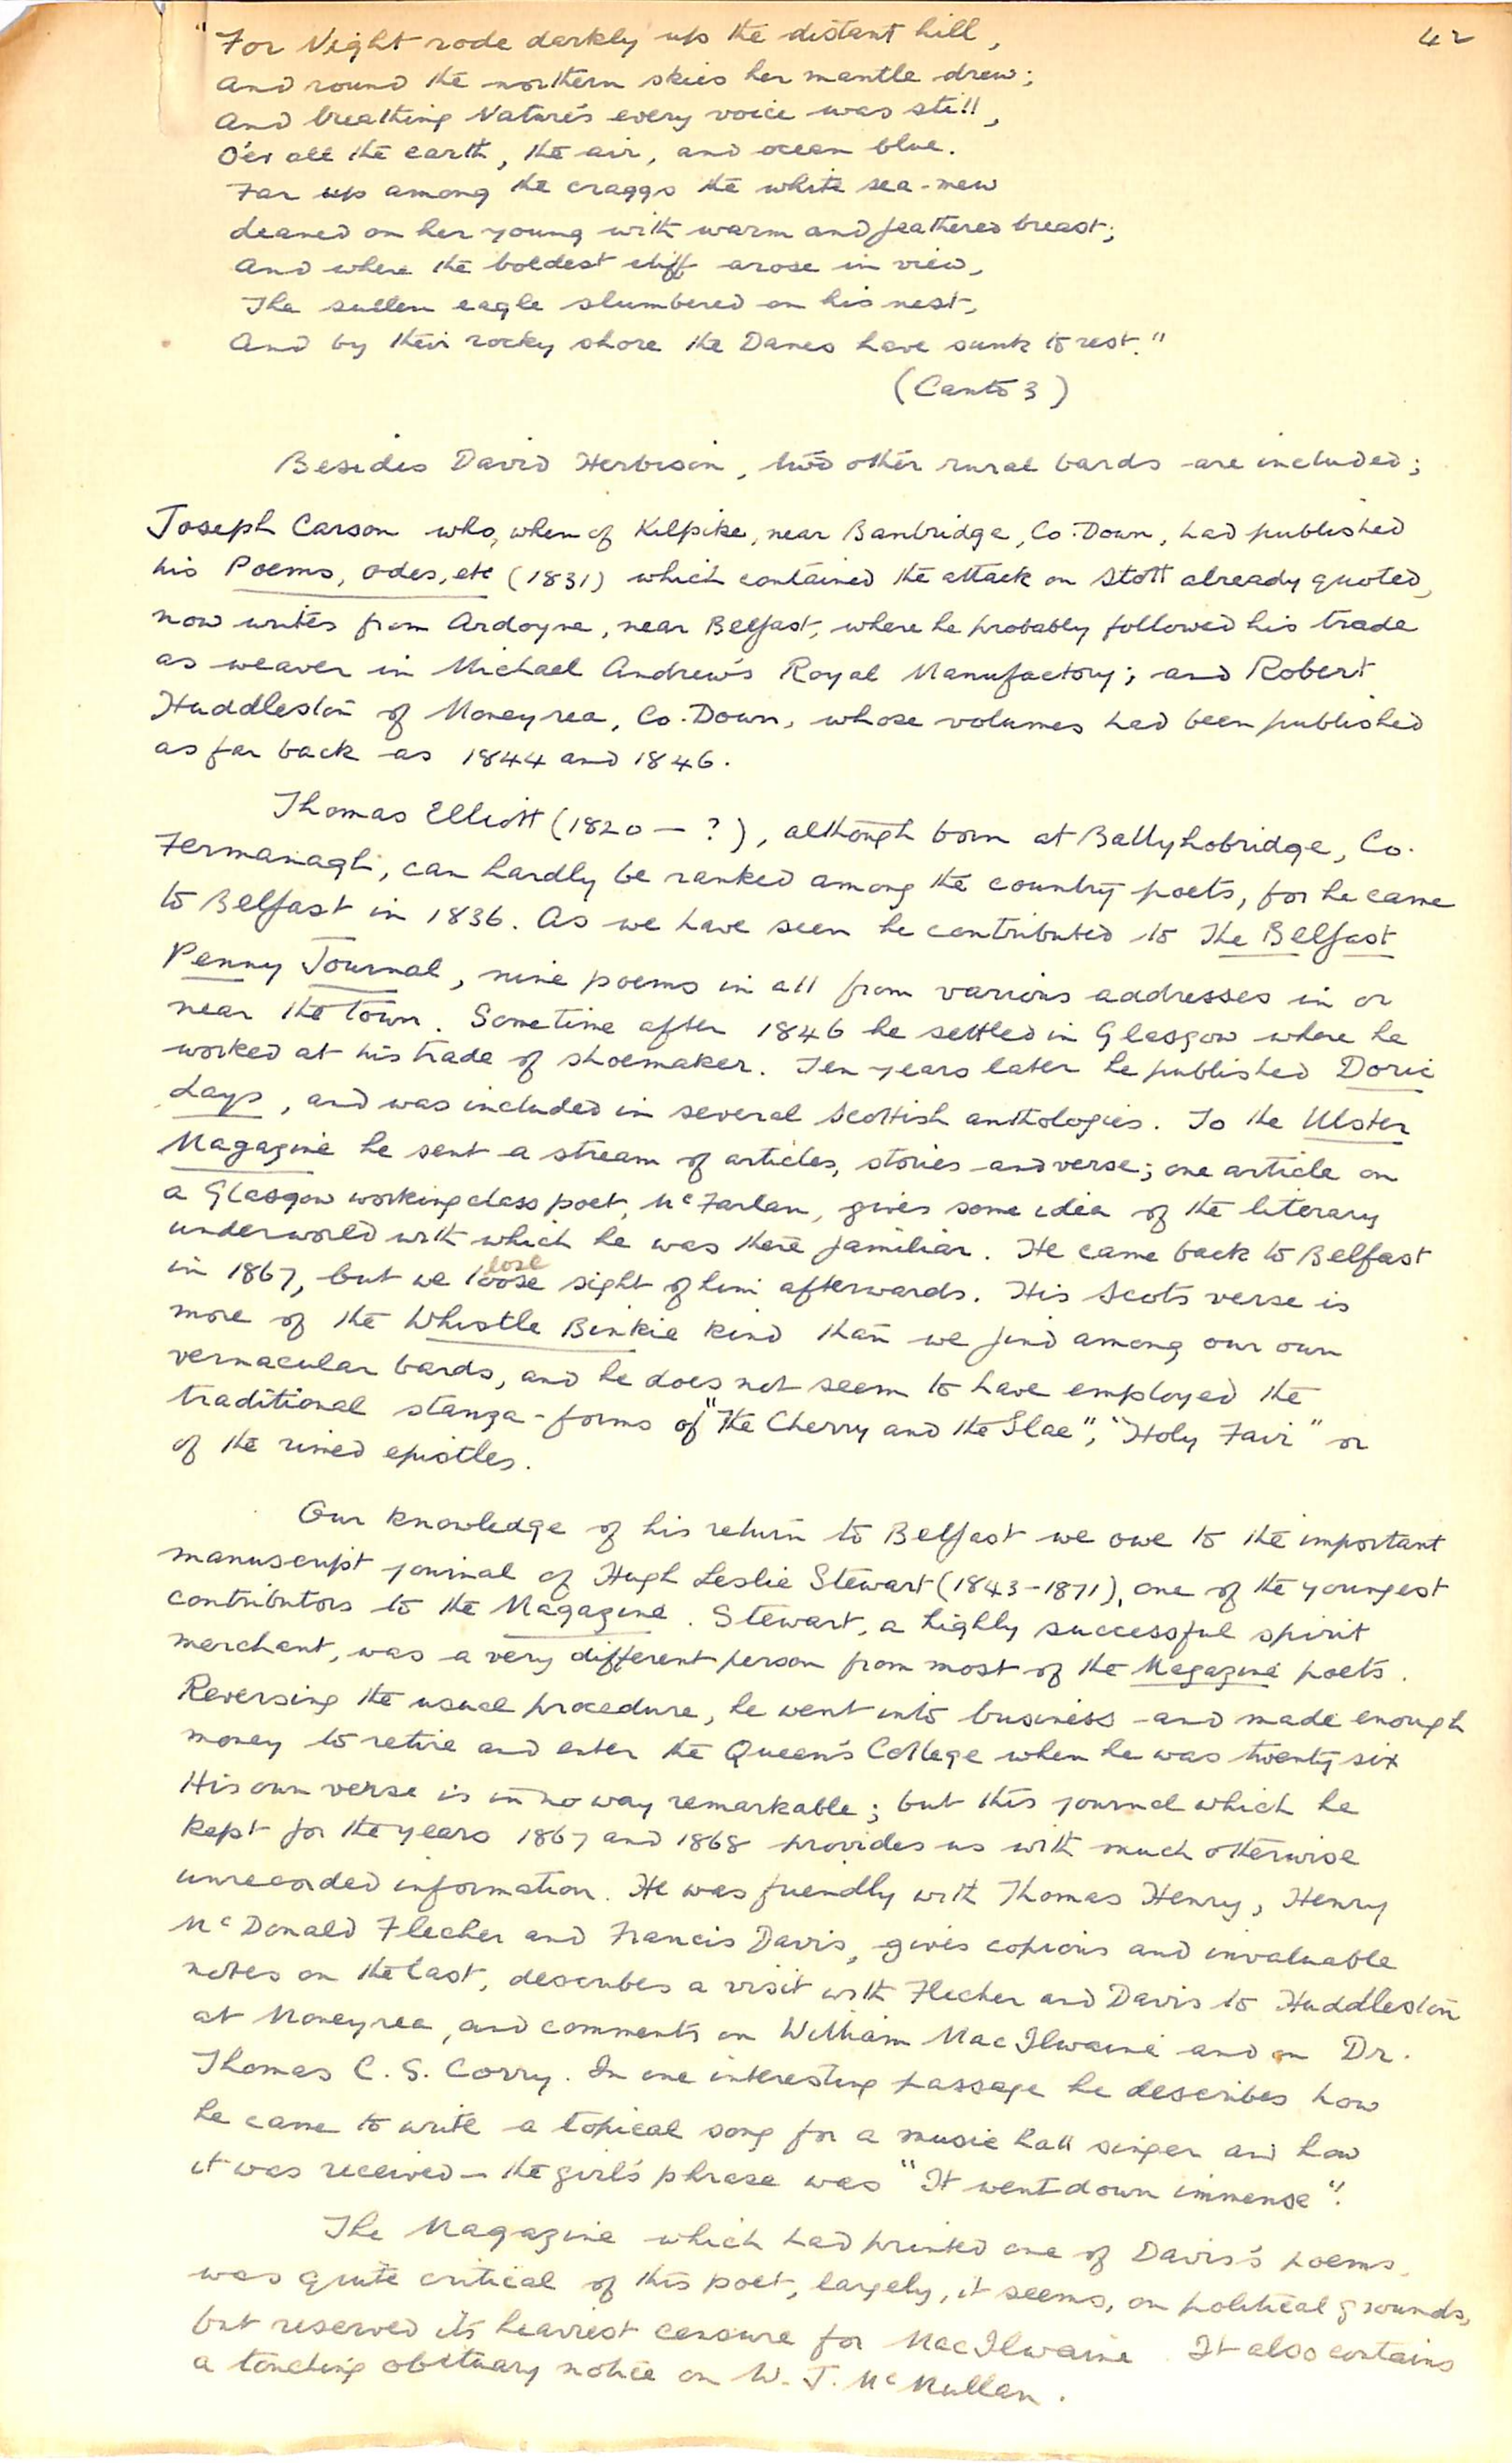 42
"For Night rode darkly up the distant hill,
And round the northern skies her mantle drew;
And breathing Nature's every voice was still,
O'er all the earth, the air, and ocean blue.
Far up among the craggs the white sea-mew
Leaned on her young with warm and feathered breast;
And where the boldest cliff arose in view,
The sullen eagle slumbered on his nest,
And by their rocky shore the Danes have sunk to rest."
(Canto 3)
Besides David Herbison, two other rural bards are included;
Joseph Carson who, when of Kilpike, near Banbridge, Co. Down, had published
his Poems, Odes, etc (1831) which contained the attack on Stott already quoted,
now writes from Ardoyne, near Belfast, where he probably followed his trade
as weaver in Michael Andrew's Royal Manufactory; and Robert
Huddleston of Moneyrea, Co. Down, whose volumes had been published
as far back as 1844 and 1846.
Thomas Elliott (1820 - ?), although born at Ballyhobridge, Co.
Fermanagh, can hardly be ranked among the country poets, for he came
to Belfast in 1836. As we have seen he contributed to The Belfast
Penny Journal, nine poems in all from various addresses in or
near the town. Sometime after 1846 he settled in Glasgow where he
worked at his trade of shoemaker. Ten years later he published Doric
Lays, and was included in several Scottish anthologies. To the Ulster
Magazine he sent a stream of articles, stories and verse; one article on
a Glasgow working class poet, McFarlan, gives some idea of the literary
underworld with which he was there familiar. He came back to Belfast
in 1867, but we loose lose sight of him afterwards. His Scots verse is
more of the Whistle Binkie kind than we find among our own
vernacular bards, and he does not seem to have employed the
traditional stanza-forms of "The Cherry and the Slae", "Holy Fair" or
of the rimed epistles.
Our knowledge of his return to Belfast we owe to the important
manuscript journal of Hugh Leslie Stewart (1843-1871), one of the youngest
contributors to the Magazine. Stewart, a highly successful spirit
merchant, was a very different person from most of the Magazine poets.
Reversing the usual procedure, he went into business and made enough
money to retire and enter the Queen's College when he was twenty six
His own verse is in no way remarkable; but this journal which he
kept for the years 1867 and 1868 provides us with much otherwise
unrecorded information. He was friendly with Thomas Henry, Henry
McDonald Flecher and Francis Davis, gives copious and invaluable
notes on the last, describes a visit with Flecher and Davis to Huddleston
at Moneyrea, and comments on William MacIlwaine and on Dr.
Thomas C. S. Corry. In one interesting passage he describes how
he came to write a topical song for a music hall singer and how
it was received - the girl's phrase was "It went down immense".
The Magazine which had printed one of Davis's poems,
was quite critical of this poet, largely, it seems, on political grounds,
but reserved its heaviest censure for MacIlwaine. It also contains
a touching obituary notice on W. J. McMullan.